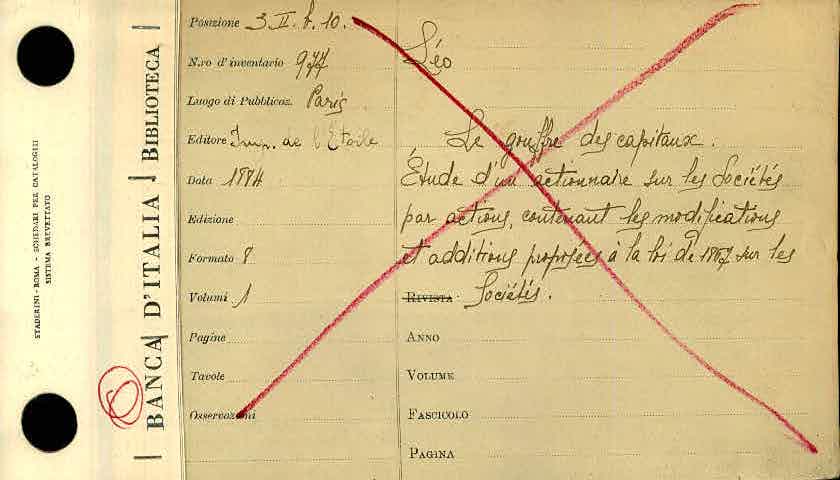 STADERINI - ROMA - SCHEDARI PER CATALOGHI
SISTEMA BREVETTATO
BANCA D'ITALIA BIBLIOTECA
Posizione 3. II. b. 10.
N.ro d'inventario 977
Luogo di Pubblicaz. Paris
Editore Imp. de l'Etoile
Data 1884
Edizione
Formato 8
Volumi 1
Pagine
Tavole
Osservazioni
Léo
Le gouffre des capitaux.
Étude d'un actionnaire sur les Sociétés
par actions, contenant les modifications
et additions proposées à la loi de 1867 sur les
RIVISTA Sociétés.
ANNO
VOLUME
FASCICOLO
PAGINA